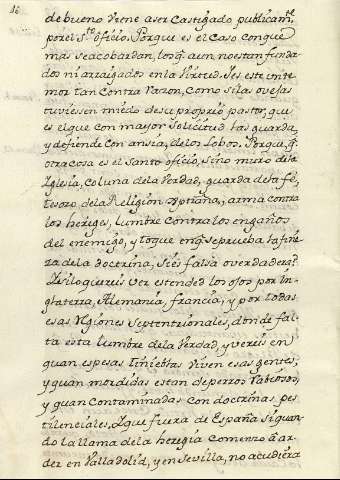 16
de bueno viene a ser Castigado publicamte.
por el Sto. oficio. Porque es el Caso con que
mas se acobardan, los q. aun no estan funda-
dos ni arraigados en la Virtud. Yes este un te-
mor tan Contra razon, como si las ovejas
tuviessen miedo de su proprio pastor, que
es el que con mayor Solicitud las guarda,
y defiende con ansia, de los Lobos. Porque, q.
otra cosa es el Santo oficio, Sino muro de la
Iglesia, coluna dela Verdad, guarda de la fé,
tesoro dela Religion xptiana, arma contra
los hereges, lumbre contra los engaños
del enemigo, y toque en q. se prueba la fine-
za dela doctrina, Si es falsa o verdadera?
Y si lo quereis ver estended los ojos por In-
glaterra, Alemania, francia, y por todas
esas Regiones Septentrionales, donde fal-
ta esta lumbre dela Verdad, y vereis en
quan espesas tinieblas viven esas gentes,
y quan mordidas estan de perros rabiosos,
y quan contaminadas con doctrinas pes-
tilenciales. Y que fuera de España si quan-
do la llama dela heregia comenzo à ar-
der en Valladolid, y en Sevilla, no acudiera